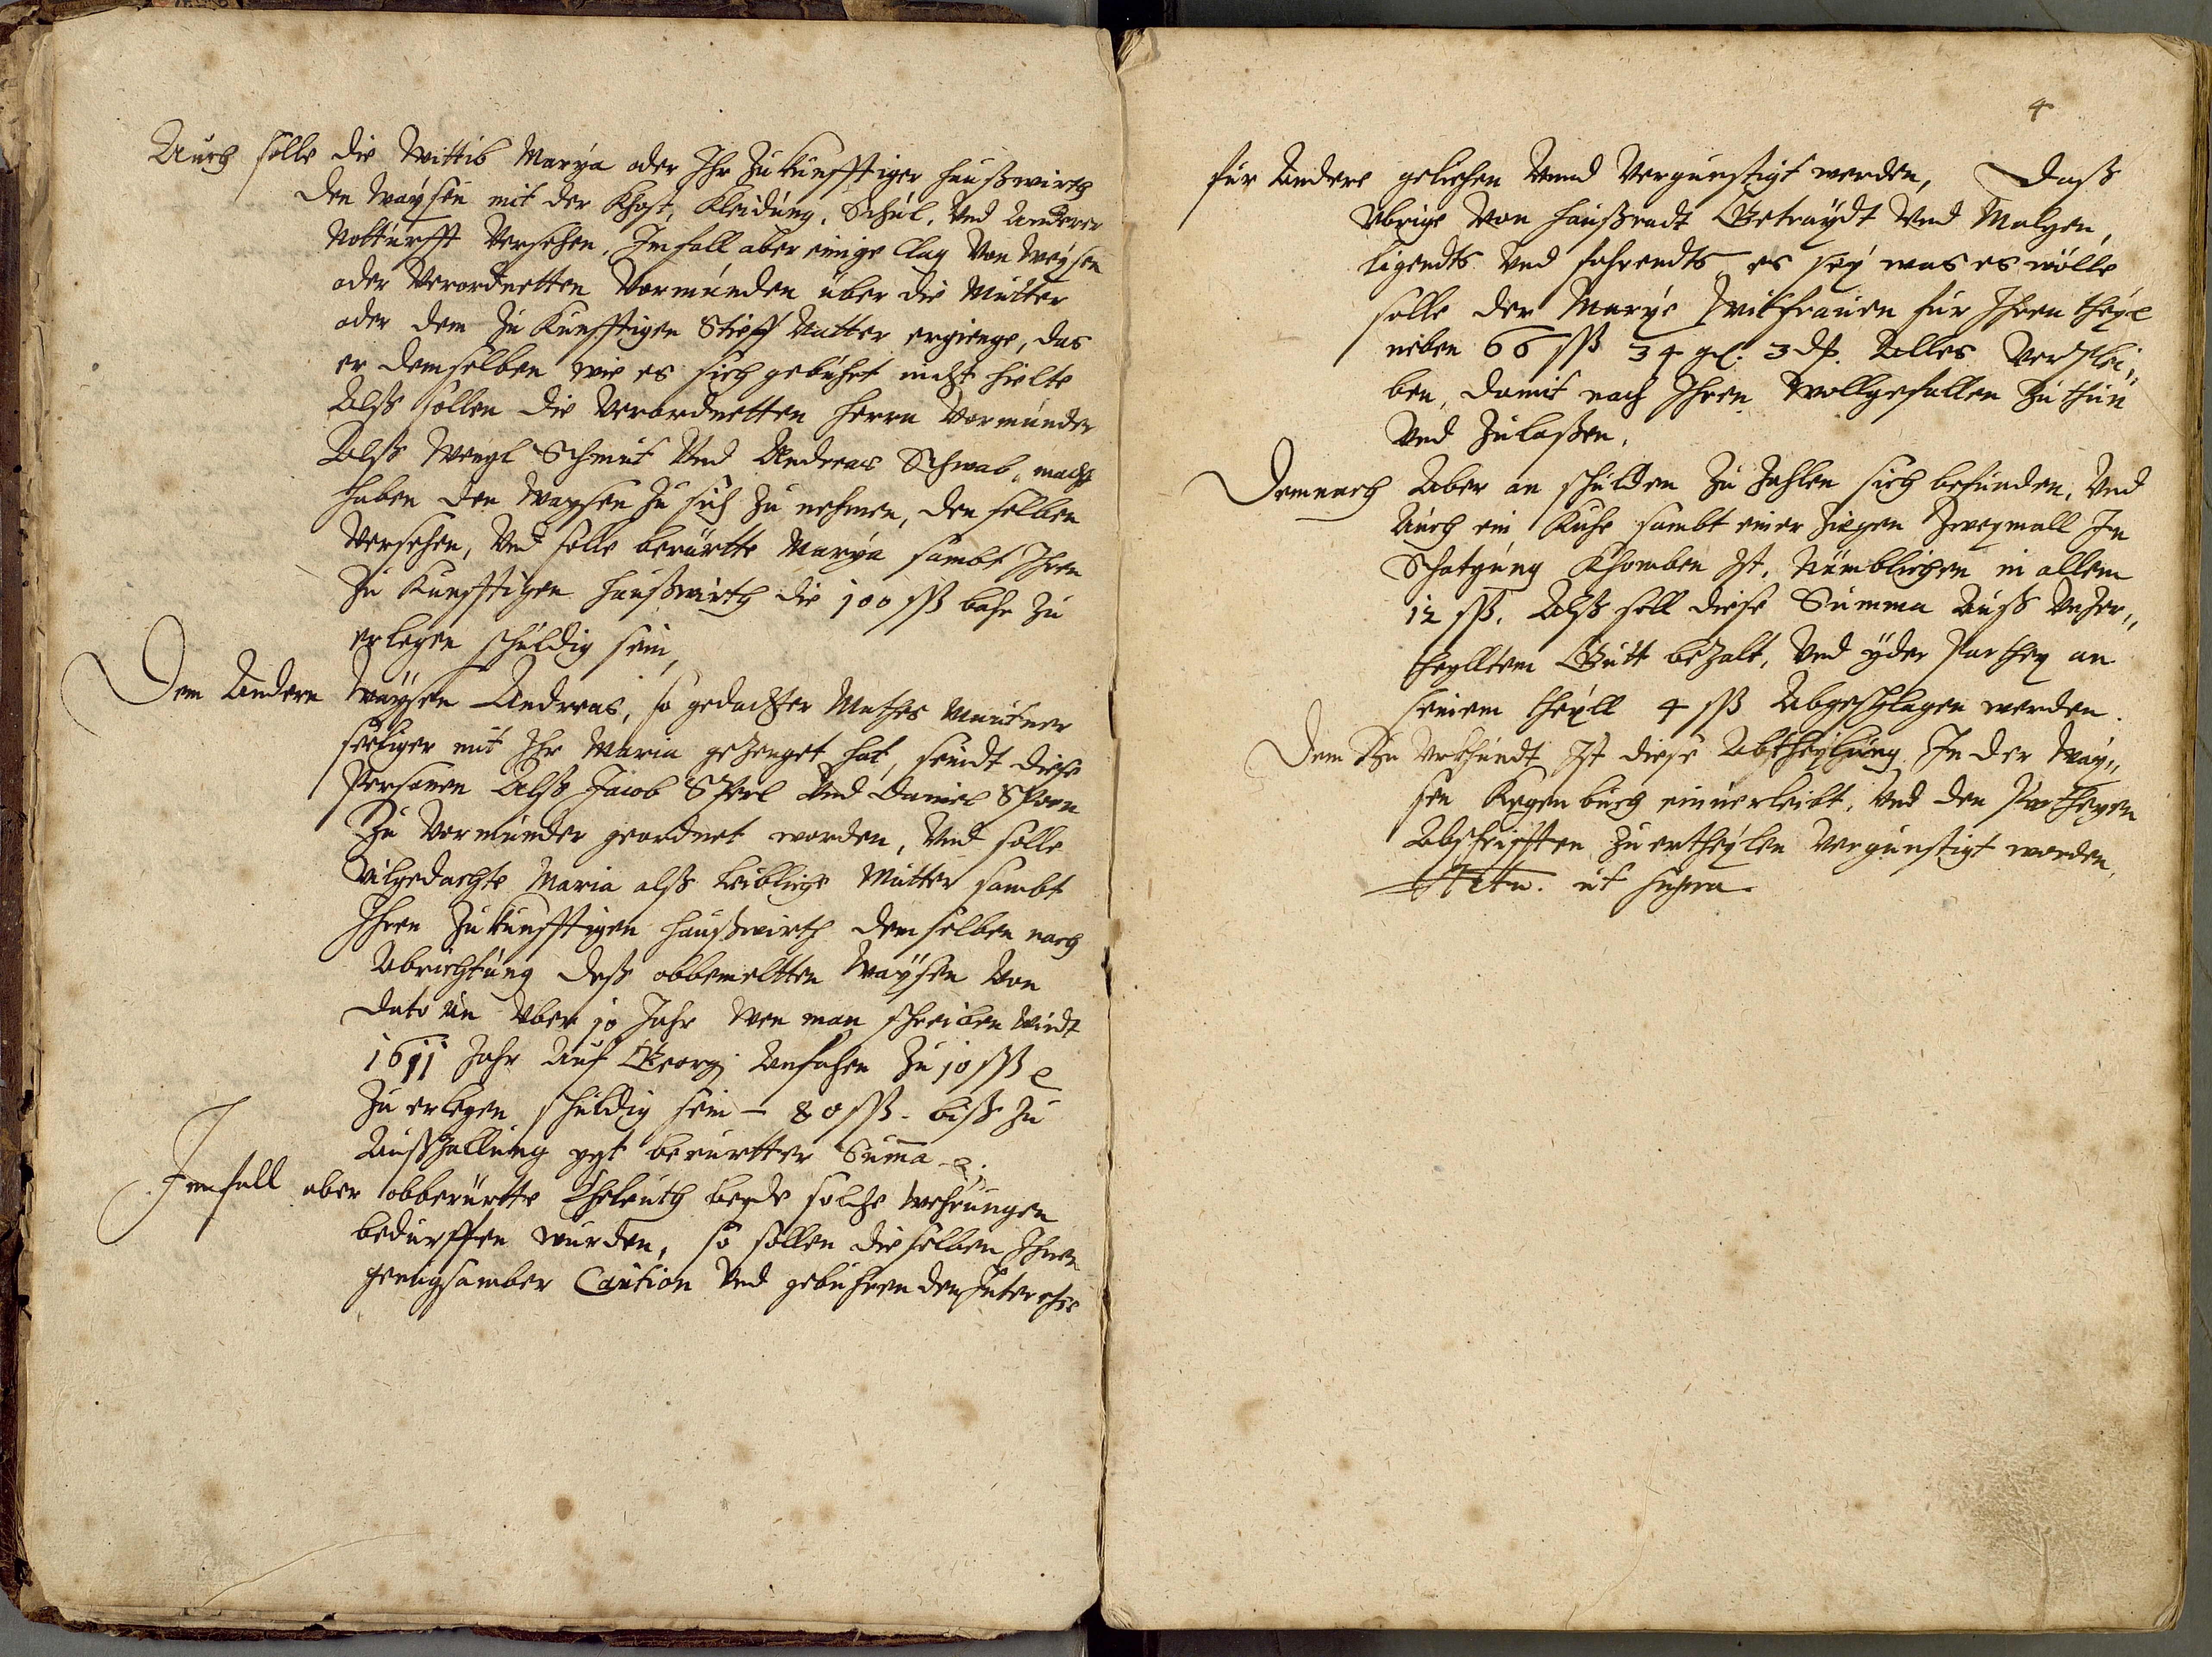 Auch solle die Wittib Marÿa oder Ihr Zukunfftiger haußwirth
den Waÿsen mit der Khost, Kleidung, Schul, Vnd Anderer
Notturfft Versehen, Im fall aber einige Clag Von Weÿsen
oder Verordnetten Vormunden über die Mutter
oder dem Zu Kunfftigen Stieff Vatter ergienge, das
er demselben wie es sich gebührt nicht hielte
Alß sollen die Verordnetten herrn Vormunder
Alß Wenzl Schmit Vnd Andreas Schwab, macht
haben den Waysen Zu sich Zu nehmen, den selben
Versehen, Vnd solle berürtte Marÿa sambt Ihren
Zu Kunfftigen haußwirth die 100 ſß bahr Zu
erlegen schuldig sein,
Dem Andern Waÿsen Andreas, so gedachter Mathes
seeliger mit Ihr Maria gezeuget hat, seindt diese
Personen Alß Jacob Vnd Daniel
Zu Vormunder geordnet worden, Vnd solle
Vilgedachte Maria alß Leibliche Mutter sambt
Ihren Zukunfftigen haußwirth demselben nach
Abrichtung deß obbemeltten Waÿsen Von
dato An Vber 10 Jahr Wen man schreiben Wirdt
1611 Jahr Auf Georgi Anfahen Zu 10 ſß
Zu erlegen schuldig sein – 80 ſß. biß Zu
Außzallung yzt berürtter Suma
Im fall aber obberürtte Eheleuth beyde solche Wehrungen
bedurffen wurden, so sollen dieselben Ihnen
genugsamber Caution Vnd gebührenden Interesse
4
für Andere geliehen Vnnd Vergunstigt werden, Daß
Vbrige Von haußradt Getraÿdt Vnd Malzen,
ligendts Vnd fahrendts es seÿ was es wölle
solle der Marÿe Witfrauen für Ihren theÿl
neben 66 ſß 34 gl. 3 d. Alles Verblei„
ben, damit nach Ihren Wollgefallen Zu thun
Vnd Zulaßen.
Demnach Aber an schulden Zu Zahlen sich befunden, Vnd
Auch ein Kuhe sambt einer Ziegen Zweymall In
Schatzung Khomben Ist, Nemblichen in allem
12 ſß. Alß soll diese Summa Auß Vnzer„
theylltem Guett bezalt, Vnd yder Parthey an
seinem theÿll 4 ſß Abgeschlagen werden.
Dem Zu Vrkhundt Ist diese Abtheylung In der Waÿ„
sen buch einuerleibt, Vnd den Partheyen
Abschrifften Zu ertheylen Vergunstigt worden,
Actu. ut supra.